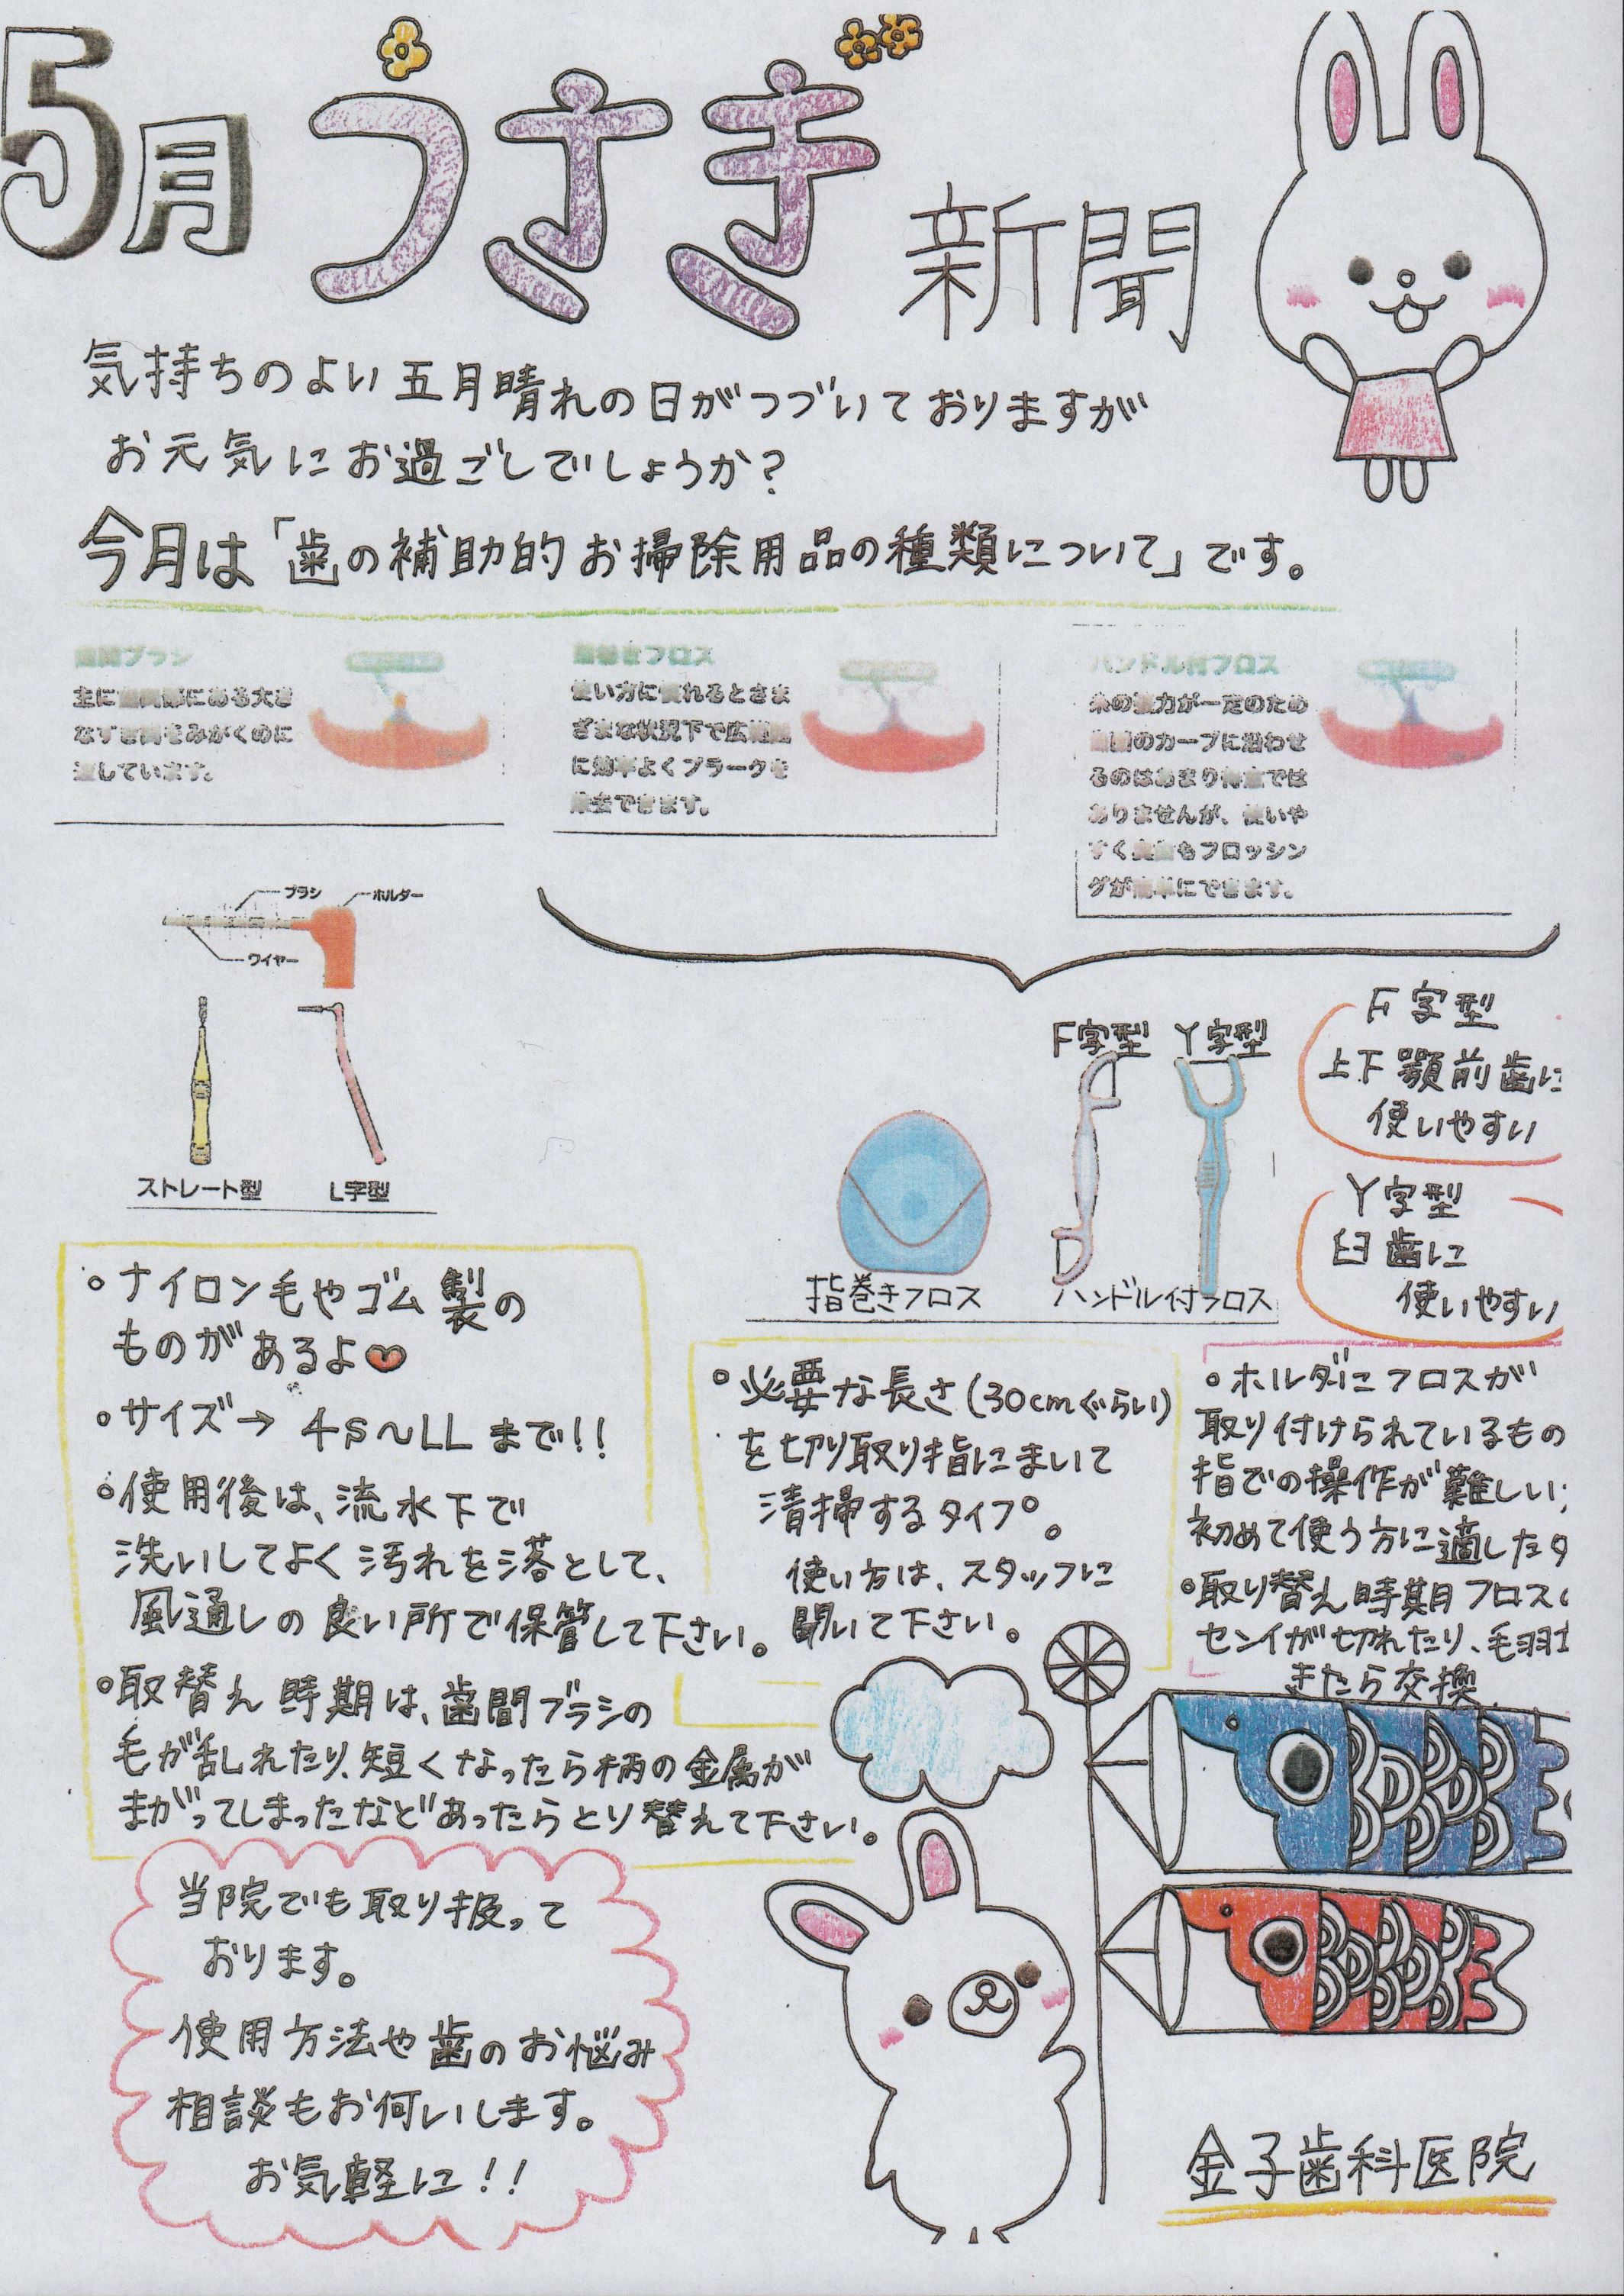 5月 うさぎ 新聞
気持ちのよい五月晴れの日がつづいておりますが
お元気にお過ごしでしょうか？
今月は「歯の補助的お掃除用品の種類について」です。
歯間ブラシ
主に歯間部にある大き
なすき間をみがくのに
適しています。
指巻きフロス
使い方に慣れるとさま
ざまな状況下で広範囲
に効率よくプラークを
除去できます。
ハンドル付フロス
糸の張力が一定のため
歯面のカーブに沿わせ
るのはあまり得意では
ありませんが、使いや
すく奥歯もフロッシン
グが簡単にできます。
ブラシ
ホルダー
ワイヤー
ストレート型
L字型
F字型
Y字型
指巻きフロス
ハンドル付フロス
F字型
上下顎前歯に
使いやすい
Y字型
臼歯に
使いやすい
・ナイロン毛やゴム製の
ものがあるよ
・サイズ→ 4S〜LLまで!!
・使用後は、流水下で
洗いしてよく汚れを落として、
風通しの良い所で保管して下さい。
・取替え時期は、歯間ブラシの
毛が乱れたり、短くなったら柄の金属が
まがってしまったなどあったらとり替えて下さい。
・必要な長さ(30cmぐらい)
を切り取り指にまいて
清掃するタイプ。
使い方は、スタッフに
聞いて下さい。
・ホルダーにフロスが
取り付けられているもの
指での操作が難しい
初めて使う方に適したタ
・取り替え時期フロス
センイが切れたり、毛羽
きたら交換
当院でも取り扱って
おります。
使用方法や歯のお悩み
相談もお伺いします。
お気軽に!!
金子歯科医院